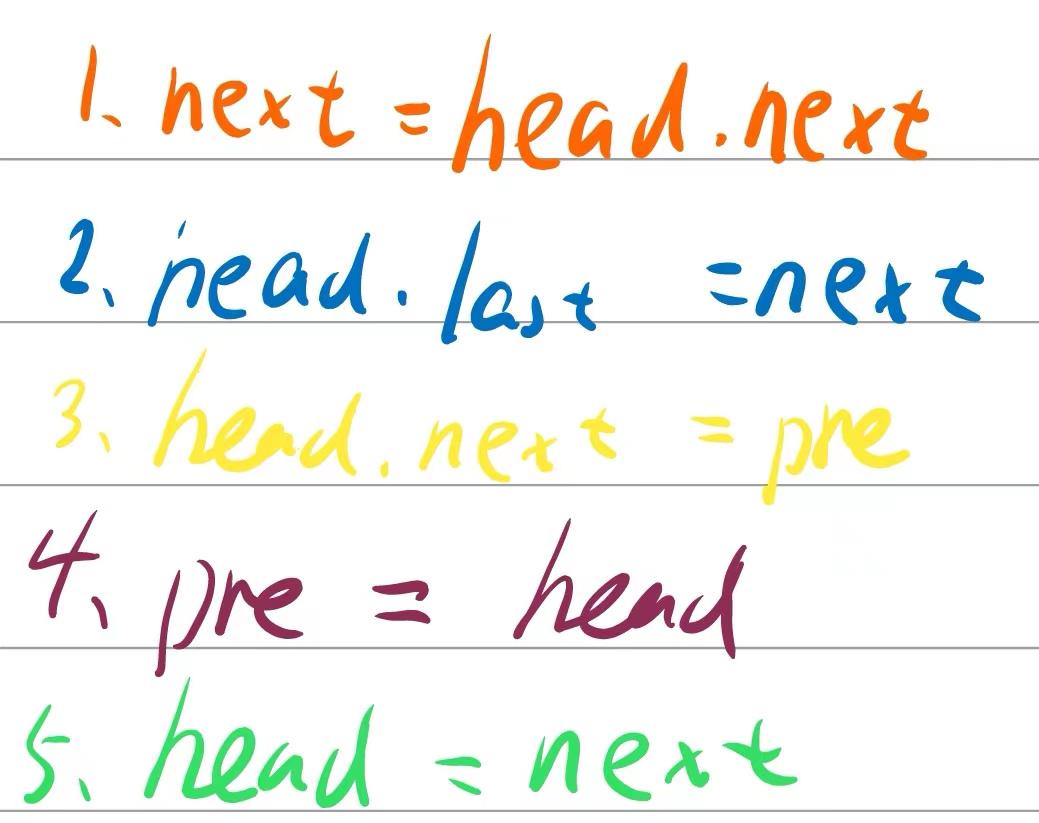 1、next = head.next
2、head.last = next
3、head.next = pre
4、pre = head
5、head = next